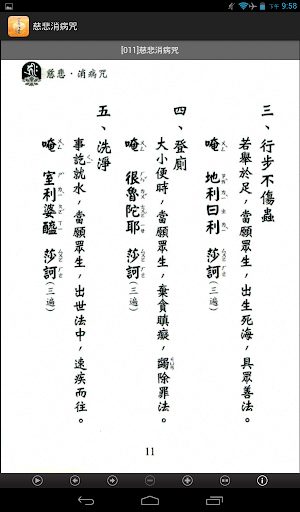 慈悲消病咒
下午 9:58
[011]慈悲消病咒
慈悲·消病咒
三、行步不傷蟲
若舉於足，當願眾生，出生死海，具眾善法。
唵　地利日利　莎訶(三遍)
四、登廁
大小便時，當願眾生，棄貪瞋癡，蠲除罪法。
唵　很魯陀耶　莎訶(三遍)
五、洗淨
事訖就水，當願眾生，出世法中，速疾而往。
唵　室利婆醯　莎訶(三遍)
11